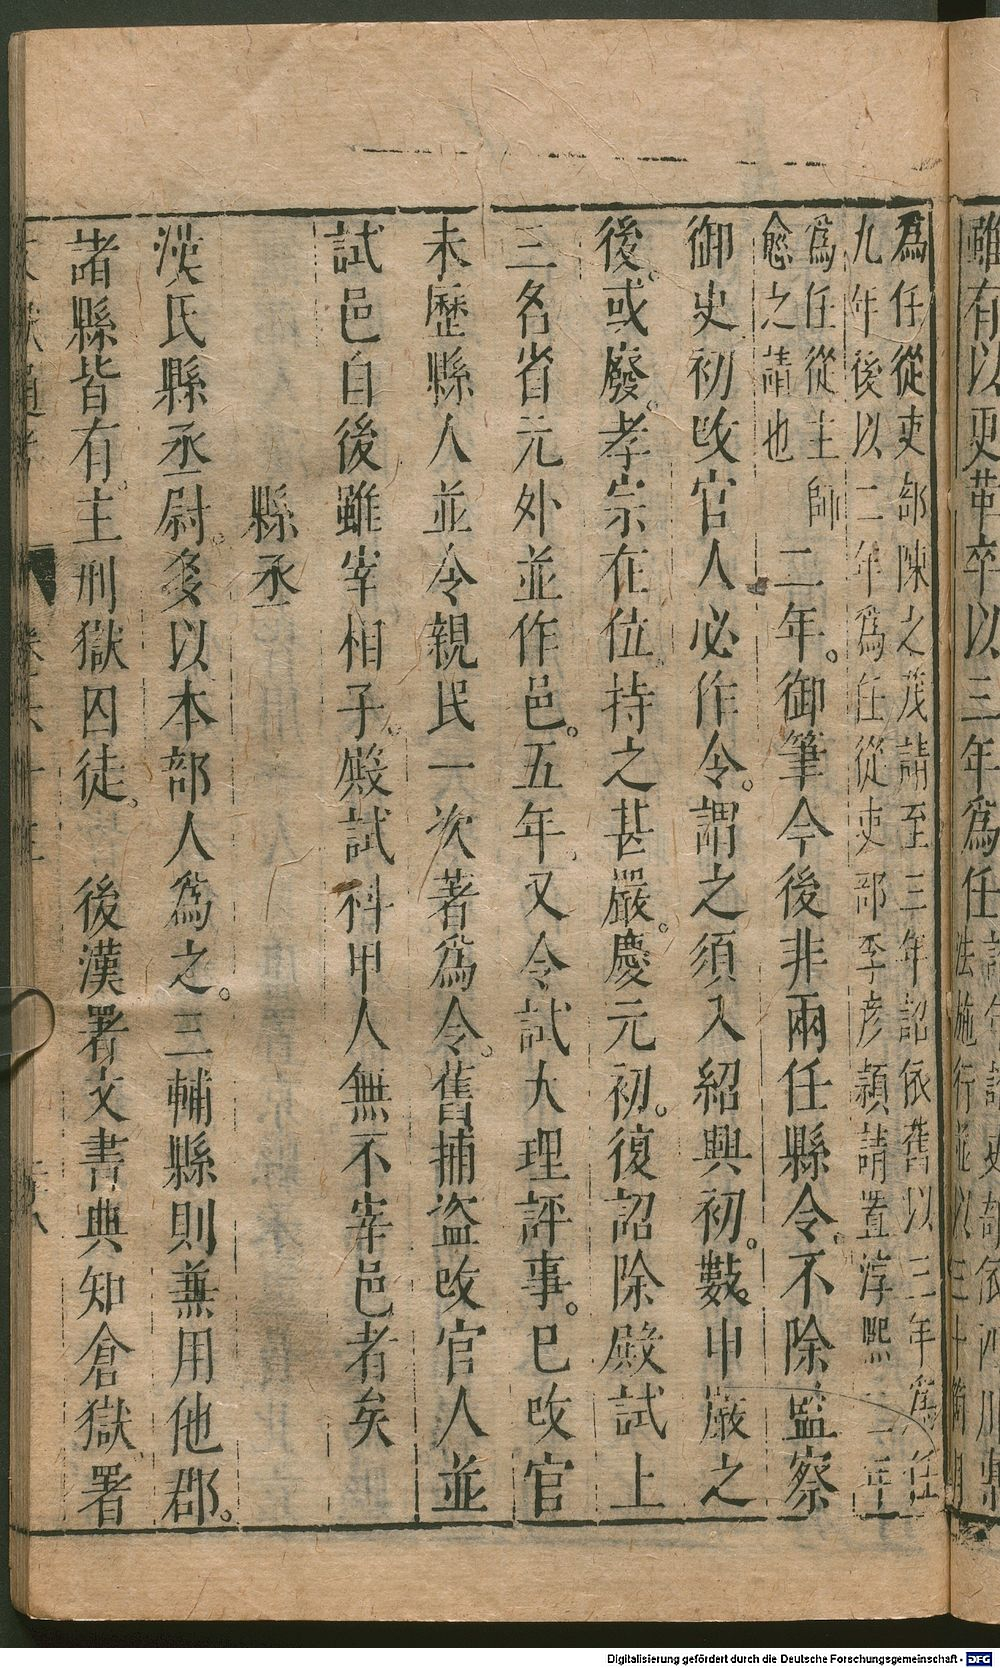 雖有以更革卒以三年爲任
法施行並以三十箇月
爲任從吏部陳之茂請至三年詔依舊以三年爲任
九年後以二年爲任從吏部季彦頴請置淳熙二年
爲任從主帥
愈之請也
二年。御筆今後非兩任縣令。不除監察
御史初改官人必作令。謂之須入紹興初。數申嚴之
後。或廢。孝宗在位。持之甚嚴。慶元初。復詔除殿試上
三名省元外並作邑。五年。又令試大理評事。已改官
未歷縣人並令親民一次著爲令。舊捕盜改官人並
試邑自後雖宰相子。殿試科甲人無不宰邑者矣
縣丞
漢氏縣丞尉。多以本部人爲之。三輔縣則兼用他郡。
諸縣皆有。主刑獄囚徒。 後漢署文書典知倉獄。署
Digitalisierung gefördert durch die Deutsche Forschungsgemeinschaft - DFG